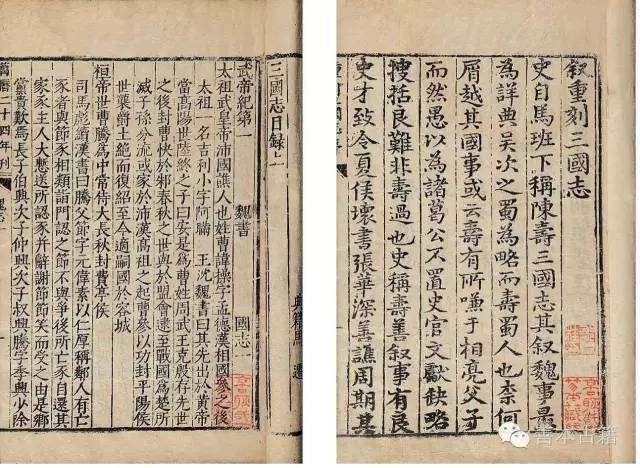 叙重刻三國志
史自馬班下稱陳壽三國志其叙魏事最
為詳典吳次之蜀為略而壽蜀人也柰何
屑越其國事或云壽有所嗛于相亮父子
而然愚以為諸葛公不置史官文獻缺略
搜括良難非壽過也史稱壽善叙事有良
史才致令夏侯壞書張華深善譙周期其
三國志目録上
武帝紀第一 魏書 國志一
太祖武皇帝沛國譙人也姓曹諱操字孟德漢相國參之後
太祖一名吉利小字阿瞞 王沈魏書曰其先出於黃帝
當高陽世陸終之子曰安是爲曹姓周武王克殷存先世
之後封曹俠於邾春秋之世與於盟會逮至戰國爲楚所
滅子孫分流或家於沛漢高祖之起曹參以功封平陽侯
世襲爵土絶而復紹至今適嗣國於容城
桓帝世曹騰爲中常侍大長秋封費亭侯
司馬彪續漢書曰騰父節字元偉素以仁厚稱鄰人有亡
豕者與節豕相類詣門認之節不與爭後所亡豕自還其
家豕主人大慙送所認豕并辭謝節節笑而受之由是鄉
黨貴歎焉長子伯興次子仲興次子叔興騰字季興少除
萬曆二十四年刊
善本古籍